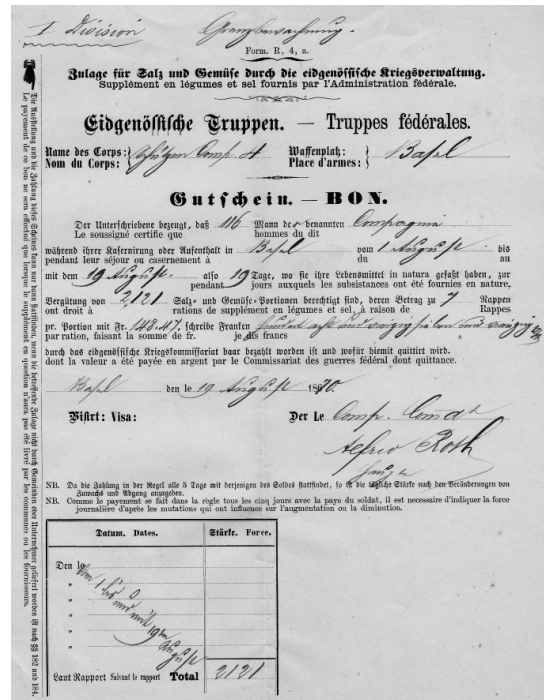 I Division Grenzbewachung.
Form. R, 4, a.
Zulage für Salz und Gemüse durch die eidgenössische Kriegsverwaltung.
Supplément en légumes et sel fournis par l'Administration fédérale.
Eidgenössische Truppen. — Truppes fédérales.
Name des Corps: Schützen Comp. 4 Waffenplatz: Basel
Nom du Corps: Place d'armes:
Gutschein. — BON.
Der Unterschriebene bezeugt, daß 116 Mann der benannten Compagnie
Le soussigné certifie que hommes du dit
während ihrer Kasernirung oder Aufenthalt in Basel vom 1 August bis
pendant leur séjour ou casernement à du au
mit dem 19 August. also 19 Tage, wo sie ihre Lebensmittel in natura gefaßt haben, zur
pendant jours auxquels les subsistances ont été fournies en nature,
Vergütung von 2,121 Salz- und Gemüse-Portionen berechtigt sind, deren Betrag zu 7 Rappen
ont droit à rations de supplément en légumes et sel, à raison de Rappes
pr. Portion mit Fr. 148.47. schreibe Franken hundert acht und vierzig sieben und vierzig
par ration, faisant la somme de fr. je dis francs
durch das eidgenössische Kriegskommissariat baar bezahlt worden ist und wofür hiemit quittirt wird.
dont la valeur a été payée en argent par le Commissariat des guerres fédéral dont quittance.
Basel den le 19 August 1870.
Visirt: Visa: Der Le Comp. Comdt
Alfred Roth
NB. Da die Zahlung in der Regel alle 5 Tage mit derjenigen des Soldes stattfindet, so ist die tägliche Stärke nach den Veränderungen von
Zuwachs und Abgang anzugeben.
NB. Comme le payement se fait dans la règle tous les cinq jours avec la paye du soldat, il est necessaire d'indiquer la force
journalière d'après les mutations qui ont influence sur l'augmentation ou la diminution.
Datum. Dates. Stärke. Force.
Den le Vom
" 1
" und mit
" 19ten
" August
Laut Rapport Suivant le rapport Total 2121
Die Ausstellung und die Zahlung dieses Scheines kann nur dann stattfinden, wenn die betreffende Zulage nicht durch Gemeinden oder Unternehmer geliefert worden ist nach §§ 182 und 184.
Le payement de ce bon ne sera effectué que lorsque le supplément en question n'aura pas été livré par les communes ou les fournisseurs.